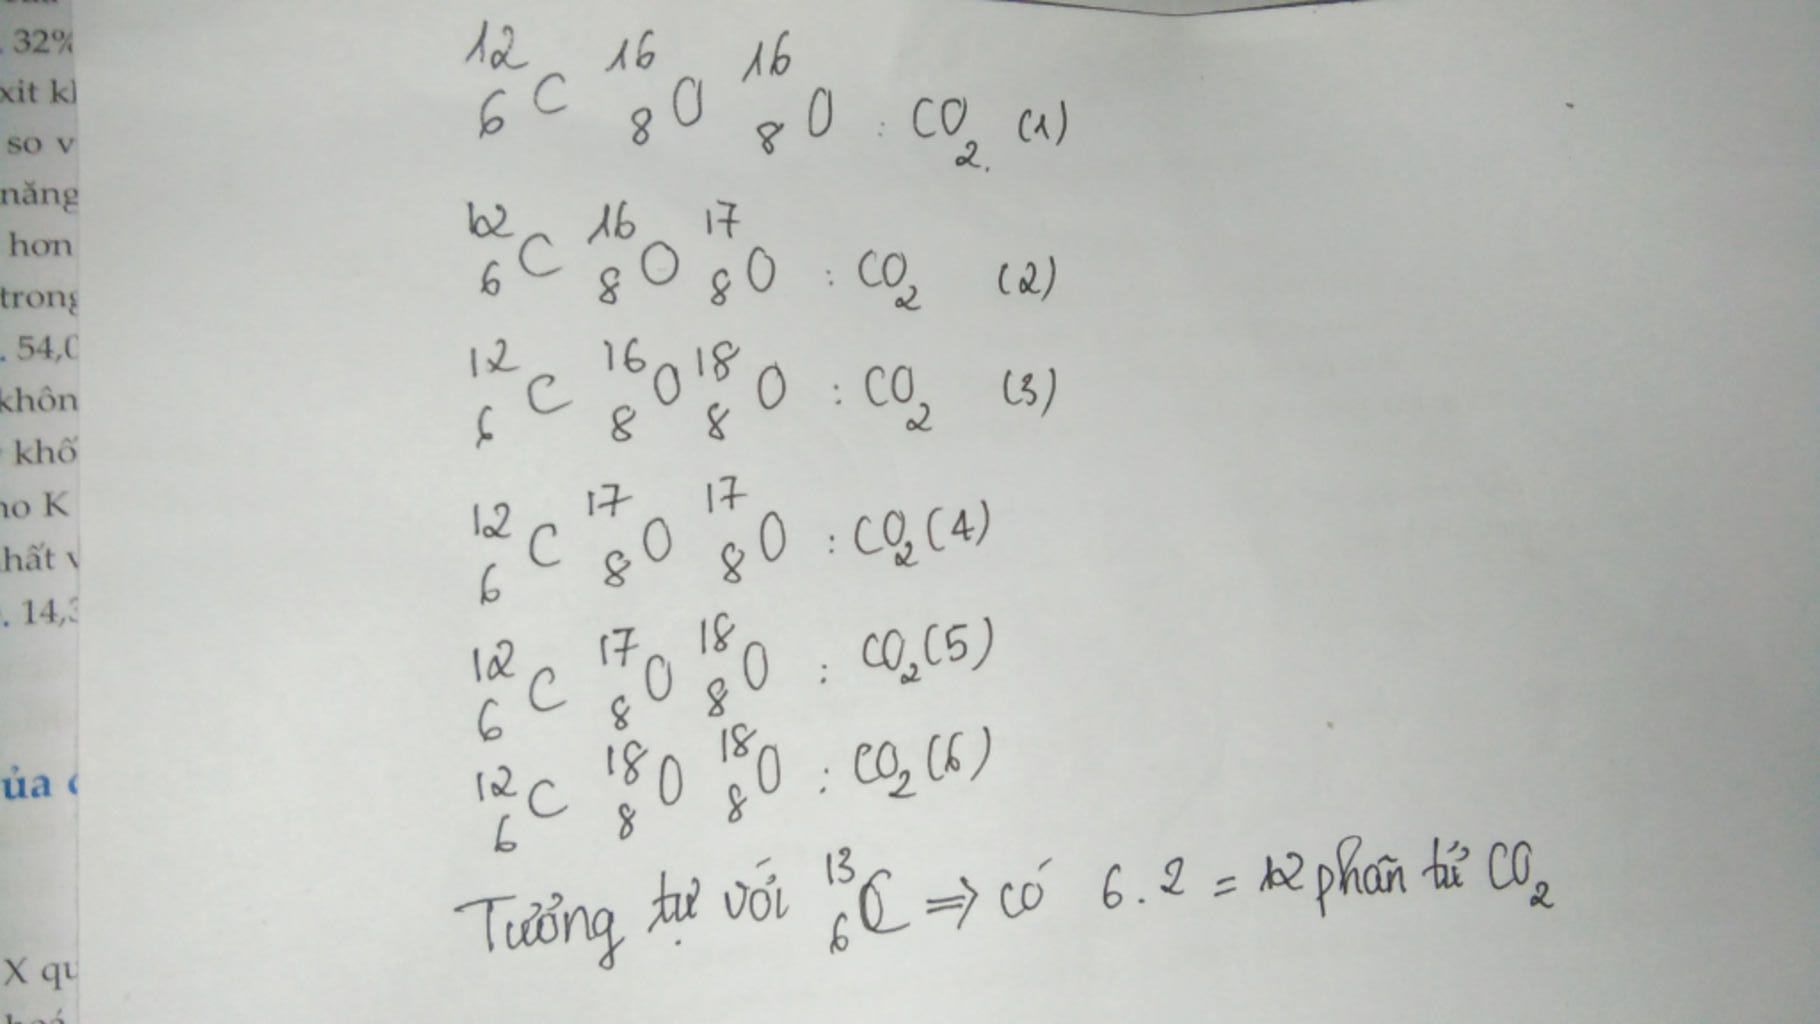 32%
xit kl
so v
năng
hơn
trong
. 54,0
khôn
khố
no K
hất v
. 14,3
ủa
X qu
12 6 C 16 8 O 16 8 O : CO2. (1)
12 6 C 16 8 O 17 8 O : CO2 (2)
12 6 C 16 8 O 18 8 O : CO2 (3)
12 6 C 17 8 O 17 8 O : CO2 (4)
12 6 C 17 8 O 18 8 O : CO2 (5)
12 6 C 18 8 O 18 8 O : CO2 (6)
Tưởng tự với 13 6 C => có 6 . 2 = 12 phân tử CO2